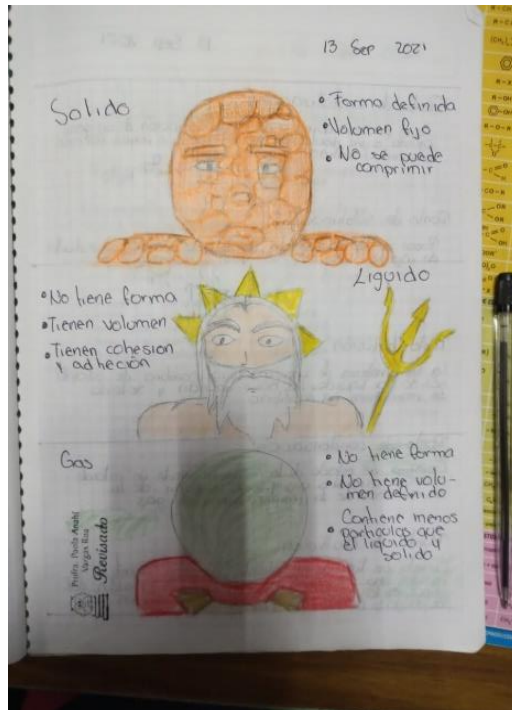 13 Sep 2021
Solido
• Forma definida
• Volumen fijo
• No se puede
comprimir
Liquido
• No tiene forma
• Tienen volumen
• Tienen cohesion
y adheción
Gas
• No tiene forma
• No tiene volu-
men definido
• Contiene menos
particulas que
el liquido y
solido
Profra. Paola Anahí
Vargas Roa
Revisado